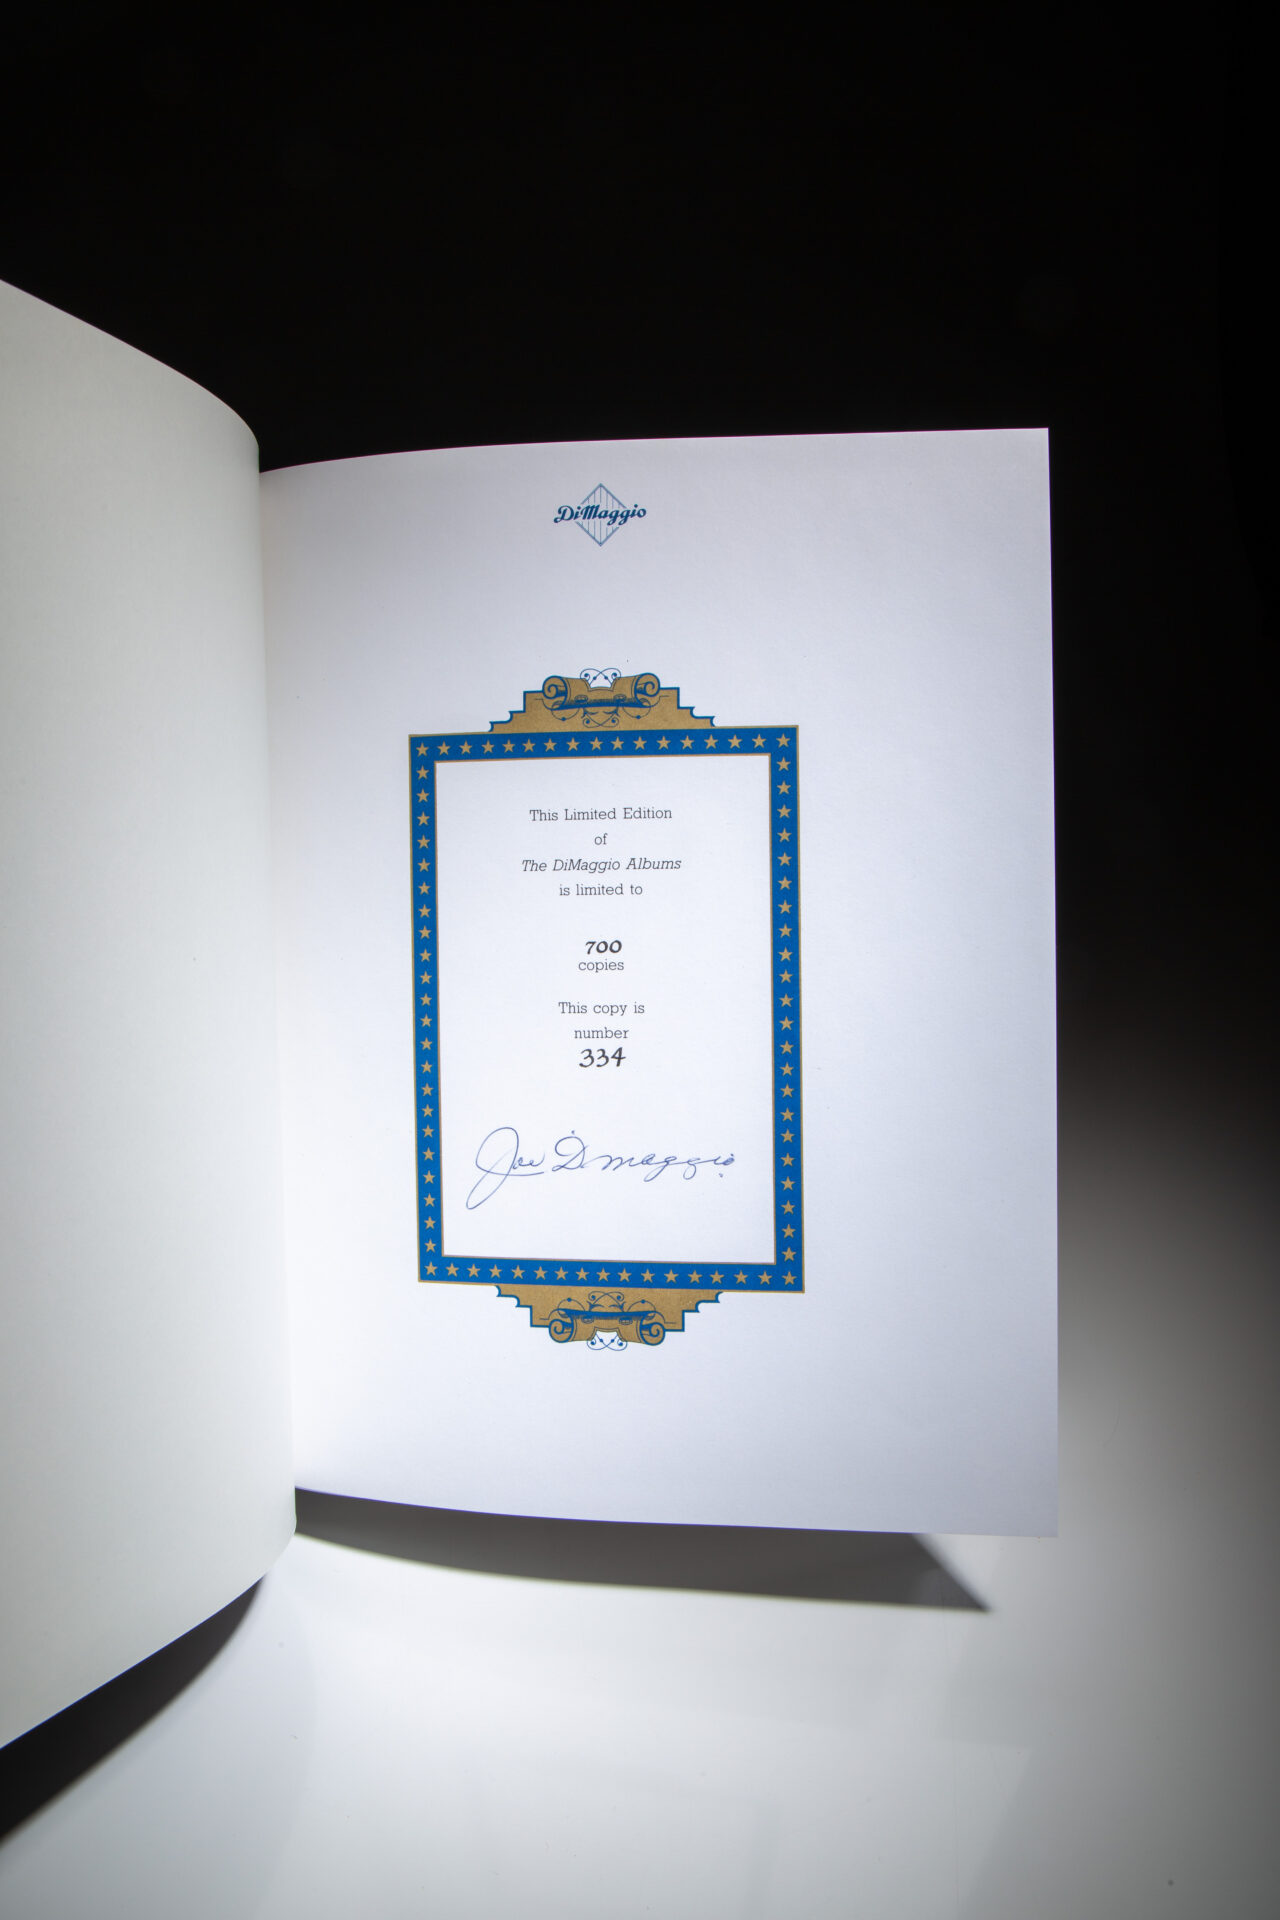 DiMaggio
This Limited Edition
of
The DiMaggio Albums
is limited to
700
copies
This copy is
number
334
Joe DiMaggio